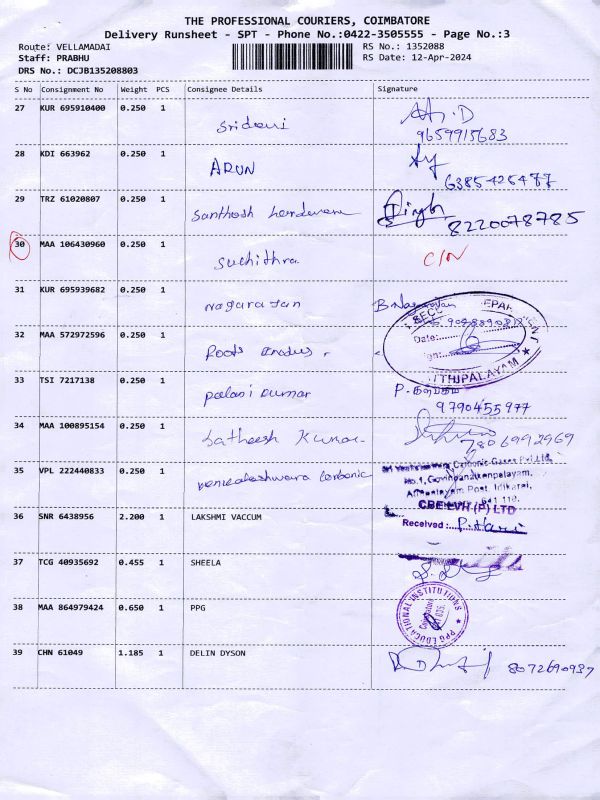 THE PROFESSIONAL COURIERS, COIMBATORE
Delivery Runsheet - SPT - Phone No.:0422-3505555 - Page No.:3
Route: VELLAMADAI RS No.: 1352088
Staff: PRABHU RS Date: 12-Apr-2024
DRS No.: DCJB135208803
S No Consignment No Weight PCS Consignee Details Signature
27 KUR 695910400 0.250 1 Sridevi
9659915683
28 KDI 663962 0.250 1 ARUN
6385425477
29 TRZ 61020807 0.250 1 Santhosh
8220078785
30 MAA 106430960 0.250 1 Suchithra C/N
31 KUR 695939682 0.250 1 Nagarajan B.Nagarajan
Date:
32 MAA 572972596 0.250 1 Roots
33 TSI 7217138 0.250 1 palani kumar P.
9790455977
34 MAA 100895154 0.250 1 Satheesh Kumar
7806992969
35 VPL 222440833 0.250 1 venkateshwara Carbonic
No.1, Govindanaickenpalayam,
Post, Idikarai,
CBE LVH (P) LTD
36 SNR 6438956 2.200 1 LAKSHMI VACCUM Received :
37 TCG 40935692 0.455 1 SHEELA
38 MAA 864979424 0.650 1 PPG
PPG EDUCATIONAL INSTITUTIONS
39 CHN 61049 1.185 1 DELIN DYSON 8072690937